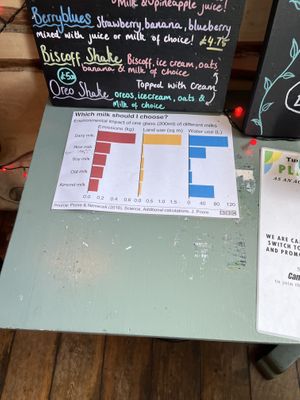 Milk & pineapple juice!
Berryblues Strawberry, banana, blueberry
mixed with juice or milk of choice! £4.75
Biscoff Shake Biscoff, ice cream, oats
banana & milk of choice
£5.50
Topped with cream
Oreo Shake oreos, icecream, oats &
Milk of choice!
Which milk should I choose?
Environmental impact of one glass (200ml) of different milks
Emissions (kg) Land use (sq m) Water use (L)
Dairy milk
Rice milk
Soy milk
Oat milk
Almond milk
0.0 0.2 0.4 0.6 0.0 0.5 1.0 1.5 0 40 80 120
Source: Poore & Nemecek (2018), Science. Additional calculations, J. Poore BBC
PL
AS AN A
WE ARE CA
SWITCH TO
AND PROMO
Can